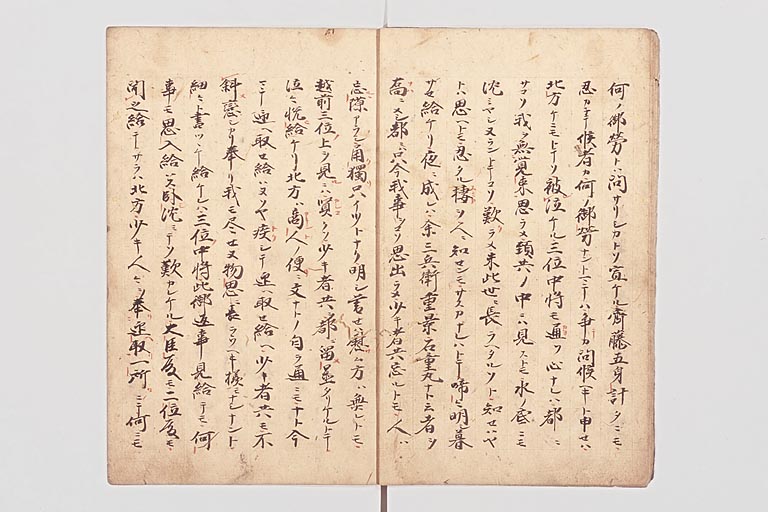 何ノ御勞トハ問サリシソトソ宣ケル齋藤五身計タニモ
忍カネテ候者カ何ノ御勞ナントマテハ争カ問候ヘキト申セハ
北方ケニモトテソ被泣ケル三位中将モ通フ心ナレハ都ニ
サコソ我ヲ無覚束思ラメ頸共ノ中ニハ見ストモ水ノ底ニモ
沈ミヤシヌラントテコソ歎ラメ未此世ニ長ラヘタルソト知セハヤ
トハ思ヘトモ忍タル棲ヲ人ニ知センモサスカナレハトテ啼々明暮
サセ給ケリ夜ニ成レハ余三兵衛重景石童丸ナト云者ヲ
高ニメシ都ニハ只今我事ヲコソ思出ラメ少キ者共忘ルトモ人ハ
忘隙アラシ角獨只イツトナク明シ暮セハ慰ム方ハ無レトモ
越前三位上ヲ見ニハ賢クソ少キ者共ヲ都ニ留置タリケルトテ
泣々悦給ケリ北方ハ商人ノ便ニ文ナトノ自ラ通ニモナト今
マテ迎ヘ取セ給ハヌソヤ疾シテ迎ヘ取セ給ヘ少キ者共モ不
斜戀シカリ奉リ我モ尽セヌ物思ニ長ラフヘキ様モナシナント
細々ト書ツヽケ給ケレハ三位中将此御返事見給テモ何
事モ思入給ハス臥沈ミテソ歎カレケル大臣殿モ二位殿モ
聞之給テサラハ北方少キ人々ヲモ奉迎取一所ニテ何ニモ